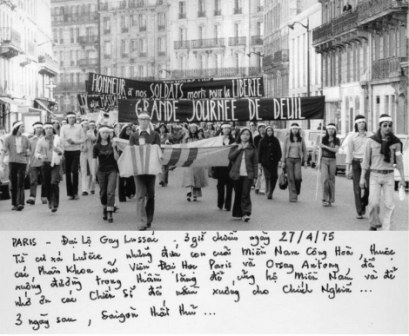 HONNEUR à nos SOLDATS morts pour la LIBERTE
GRANDE JOURNEE DE DEUIL
PARIS - Đại Lộ Gay Lussac, 3 giờ chiều ngày 27/4/75
Từ cư xá Lutèce, những đứa con cuối Miền Nam Cộng Hoà, thuộc
các Phân Khoa của Viện Đại Học Paris và Orsay Antony đã
xuống đường trong thầm lặng để ủng hộ Miền Nam và để
nhớ ơn các Chiến Sĩ đã nằm xuống cho Chính Nghĩa ...
3 ngày sau, Saigon thất thủ ...